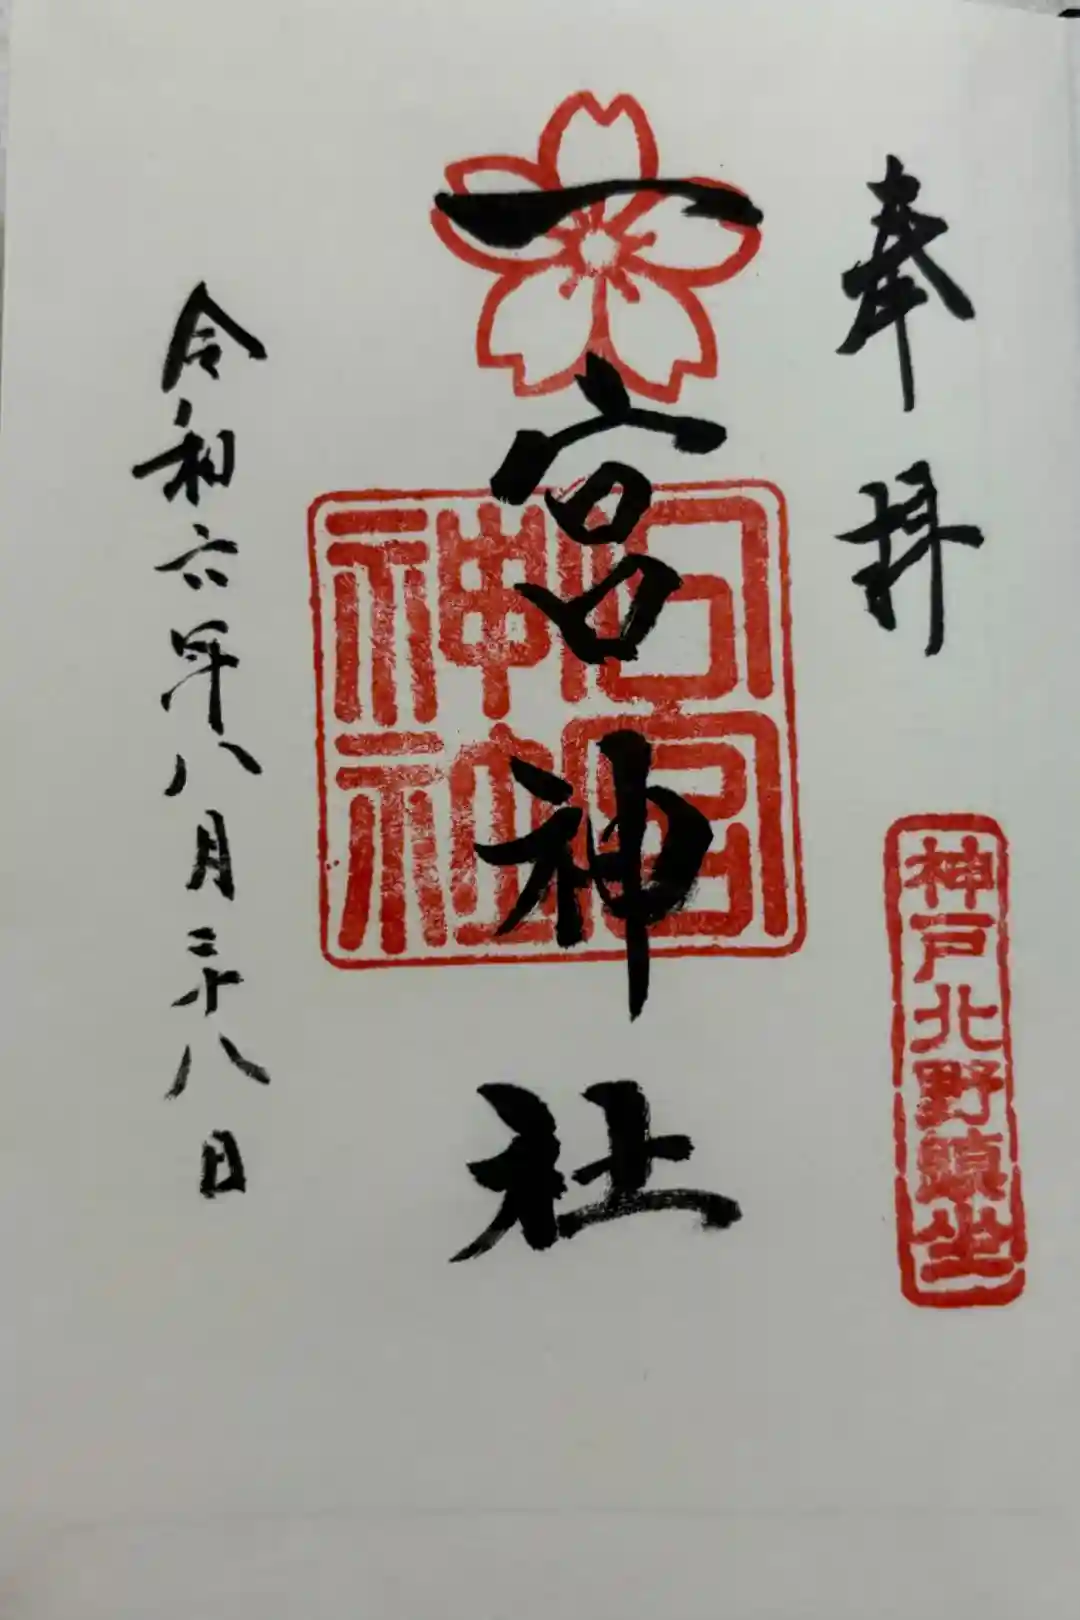 奉拝
神戸北野鎮坐
一宮神社
令和六年八月二十八日